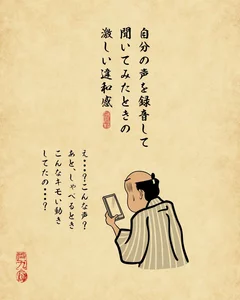 自分の声を録音して
聞いてみたときの
激しい違和感
え・・・?こんな声?
あと、しゃべるとき
こんなキモい動き
してたの・・・?